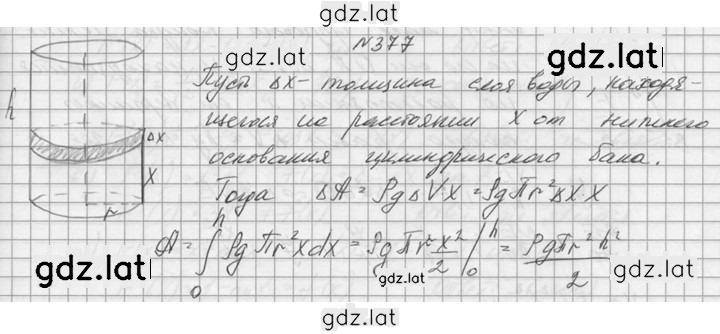 gdz.lat
№377
gdz.lat gdz.lat
Пусть Δx - толщина слоя воды, находя-
h
щегося на расстоянии x от нижнего
Δx
основания цилиндрического бака.
x
Тогда ΔA = ρgΔVx = ρgπr²Δx x
r
A = ∫₀ʰ ρgπr²xdx = ρgπr² x²/2 |₀ʰ = ρgπr²h²/2
gdz.lat gdz.lat gdz.lat
gdz.lat